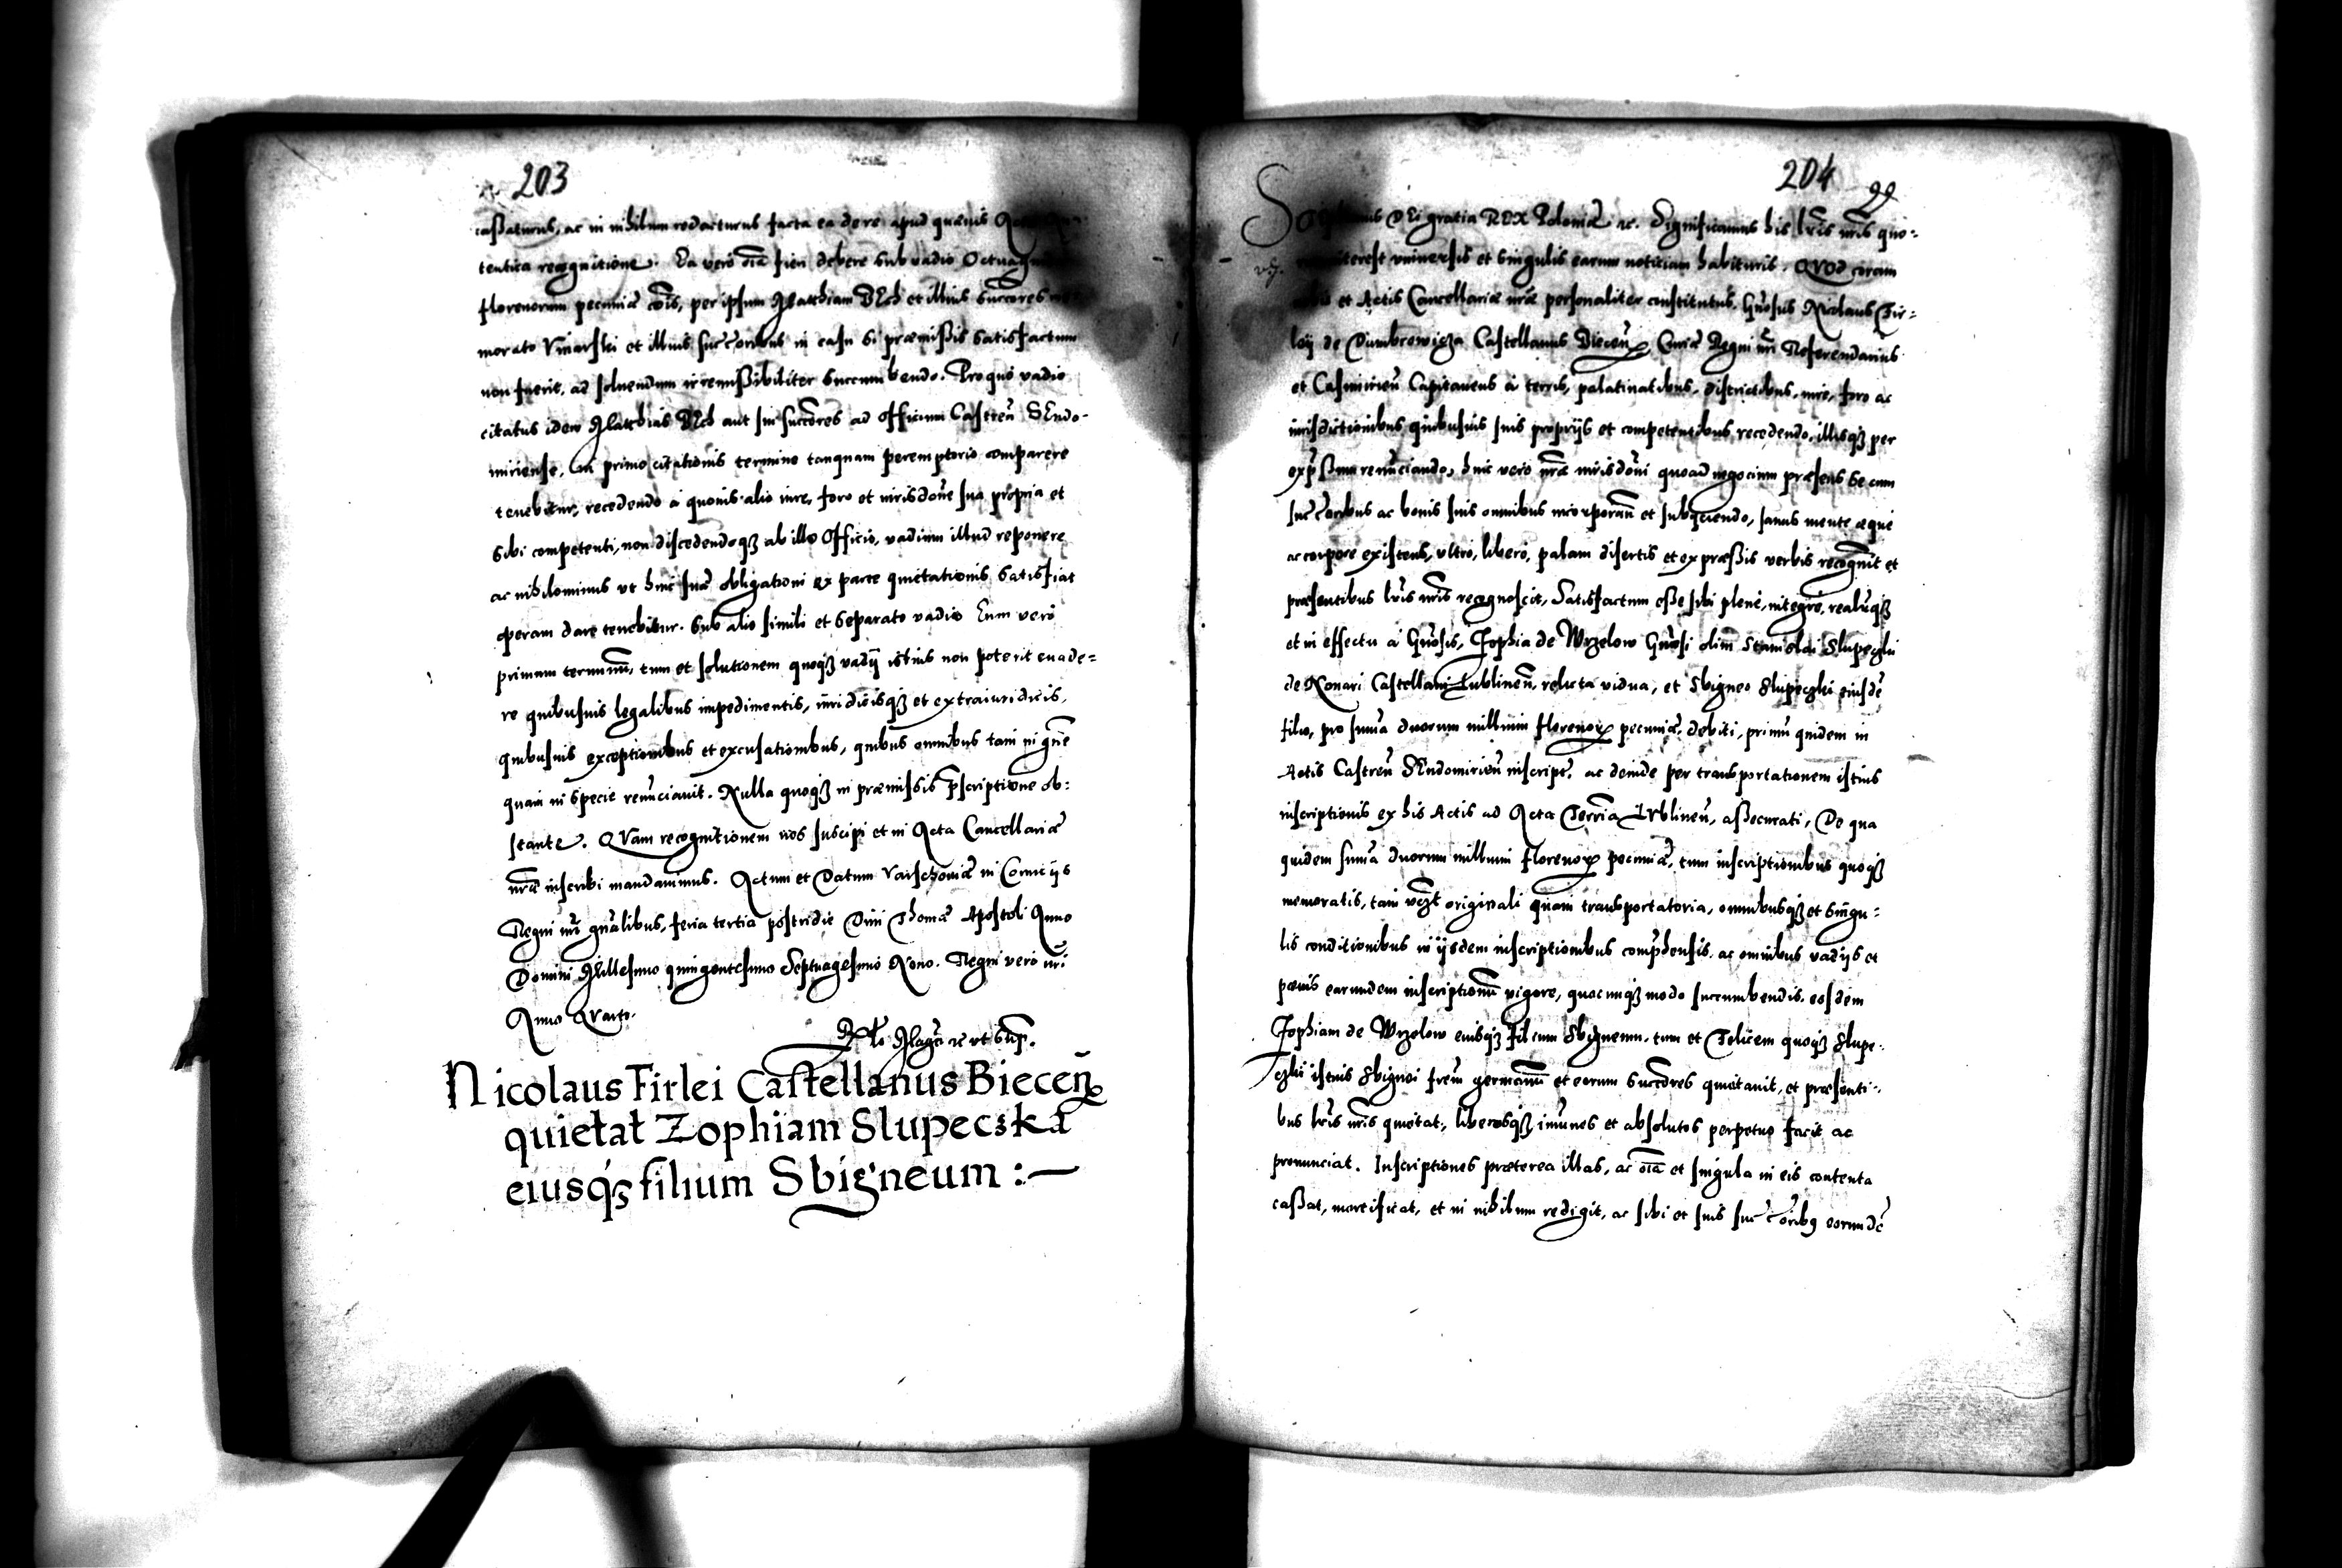 203
cassaturus, ac in nihilum redacturus facta ea de re apud quævis
tentica recognitione. Ea vero oīa fieri debere sub vadio
florenorum pecuniæ cōis, per ipsum Matthiam et illius succōres
morato Vinarski et illius succōribus in casu si præmissis satisfactum
non fuerit, ad soluendum irremissibiliter succumbendo. Pro quo vadio
citatus idem Matthias aut sui succōres ad officium Castreñ SEndo-
miriense, in primo citationis termino tanquam peremptorio comparere
tenebitur, recedendo à quouis alio iure, foro et iurisdōne sua propria et
sibi competenti, non discedendoqȝ ab illo Officio, vadium illud reponere
ac nihilominus vt huic suæ obligationi ex parte quietationis satisfiat
operam dare tenebitur. Sub alio simili et separato vadio Eum vero
primum terminū, tum et solutionem quoqȝ vadij istius non poterit euade=
re quibusuis legalibus impedimentis, iuridicisqȝ et extraiuridicis,
quibusuis exceptionibus et excusationibus, quibus omnibus tam in gñe
quam in specie renūciauit. Nulla quoqȝ in præmissis p̄scriptione ob=
stante. QVam recognitionem nos suscipi et in Acta Cancellariæ
nr̄æ inscribi mandauimus. Actum et Datum Varschouiæ in Comicijs
Regni nr̄i gñalibus, feria tertia postridie Diui Thomæ Apostoli Anno
Domini Millesimo quingentesimo Septuagesimo Nono. Regni vero nr̄i
Anno QVarto.
vt sup.
Nicolaus Firlei Castellanus Bieceñ
quietat Zophiam Slupecská
eiusqȝ filium Sbigneum :—
204
99
DEi gratia REX Poloniæ ac. Significamus his lr̄is nr̄is quo=
interest vniuersis et singulis earum noticiam habituris. QVod coram
et Actis Cancellariæ nr̄æ personaliter constitutus. Gñosus Nicolaus Fir=
leij de Dambrowicza Castellanus Bieceñ, Curiæ Regni nr̄i Referendarius
et Casimirieñ Capitaneus à terris, palatinatibus, districtibus, iure, foro ac
iurisdictionibus quibusuis suis proprijs et competentibus recedendo, illisqȝ per
exp̄ssum renūciando, huic vero nr̄æ iurisdōni quoad negocium præsens se cum
succōribus ac bonis suis omnibus incorporañ et subijciendo, sanus mente æque
ac corpore existens, vltro, libere, palam disertis et expræssis verbis recognuit et
præsentibus lr̄is nr̄is recognoscit, Satisfactum esse sibi plene, integre, realiterqȝ
et in effectu à Gñosis, Zophia de Wrzelow Gñosi olim Stanislai Slupeczki
de Konari Castellani Lublineñ, relicta vidua, et Sbigneo Slupeczki eiusdē
filio, pro sum̄a duorum millium florenorum pecuniæ, debiti, primū quidem in
Actis Castreñ SEndomirieñ inscript. ac deinde per transportationem istius
inscriptionis ex his Actis ad Acta Terr̄ia LVblineñ, assecurati, De qua
quidem sum̄a duorum millium florenorum pecuniæ, tum inscriptionibus quoqȝ
memoratis, tam originali quam transportatoria, omnibusqȝ et singu=
lis conditionibus in ijsdem inscriptionibus comp̄hensis. ac omnibus vadijs et
pœnis earundem inscriptionū vigore, quocunqȝ modo succumbendis. eosdem
Zophiam de Wrzelow eiusqȝ filium Sbigneum. tum et Felicem quoqȝ Slupe-
czki istius Sbignei frem germanū et eorum succōres quietauit, et præsenti-
bus lr̄is nr̄is quietat, liberosqȝ im̄unes et absolutos perpetuo facit ac
pronunciat. Inscriptiones præterea illas, ac oīa et singula in eis contenta
cassat, mortificat, et in nihilum redigit, ac sibi et suis succōribꝫ eorundē